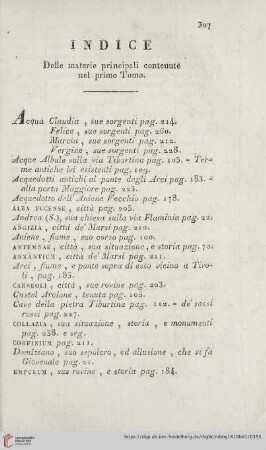 307
INDICE
Delle materie principali contenute
nel primo Tomo.
Acqua Claudia , sue sorgenti pag. 214.
Felice , sue sorgenti pag. 260.
Marcia , sue sorgenti pag. 212.
Vergine , sue sorgenti pag. 228.
Acque Albule sulla via Tiburtina pag. 105. – Ter-
me antiche ivi esistenti pag. 109.
Acquedotti antichi al ponte degli Arci pag. 183. –
alla porta Maggiore pag. 223.
Acquedotto dell'Aniene Vecchio pag. 178.
ALBA FUCENSE , città pag. 205.
Andrea (S.), sua chiesa sulla via Flaminia pag. 22.
ANGIZIA , città de' Marsi pag. 210.
Aniene , fiume , suo corso pag. 100.
ANTEMNAE , città , sua situazione, e storia pag. 70.
ANXANTICH , città de' Marsi pag. 211.
Arci , fiume , e ponte sopra di esso vicino a Tivo-
li , pag. 183.
CARSEOLI , città , sue rovine pag. 203.
Castel Arcione , tenuta pag. 103.
Cave della pietra Tiburtina pag. 112. – de' sassi
rossi pag. 227.
COLLAZIA , sua situazione , storia , e monumenti
pag. 238. e seg.
CORFINIUM pag. 211.
Domiziano , suo sepolcro , ed allusione , che vi fa
Giovenale pag. 21.
EMPULUM , sue rovine , e storia pag. 184.
UNIVERSITÄTS-
BIBLIOTHEK
HEIDELBERG